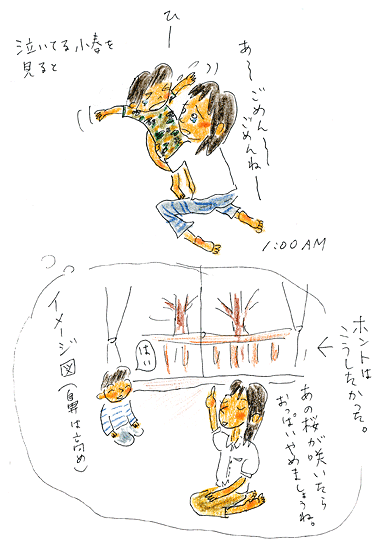 泣いてる小春を
見ると
ひー
あ〜ごめん〜
ごめんね〜
1:00AM
ホントは
こうしたかった。
あの桜が咲いたら
おっぱいやめましょうね。
はい
イメージ図(鼻は高め)